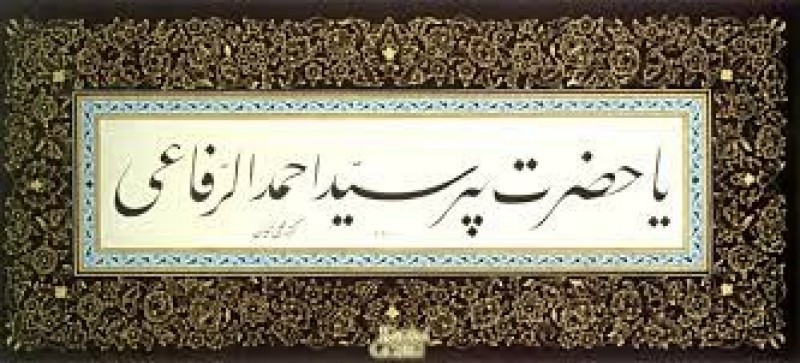 یا حضرت پیر سیّد احمد الرّفاعی